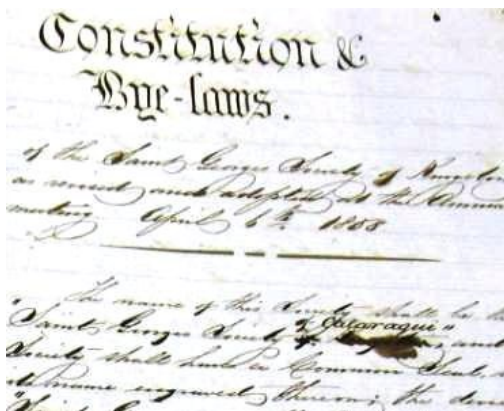 Constitution &
Bye-laws.
of the Saint Georges Society of Kingston
as revised and adopted at the Annual
meeting April 6th 1858
The name of this Society shall be the
"Saint Georges Society of Cataraqui" and
Society shall have a Common Seal,
name engraved thereon; the